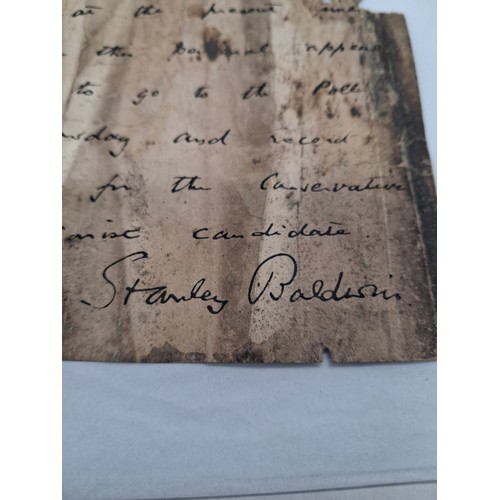 at the present time
this personal appeal
to go to the Poll
sday and record
for the Conservative
ionist candidate.
Stanley Baldwin.